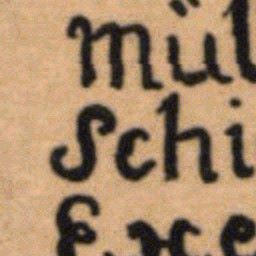 mül
Schi
Exe